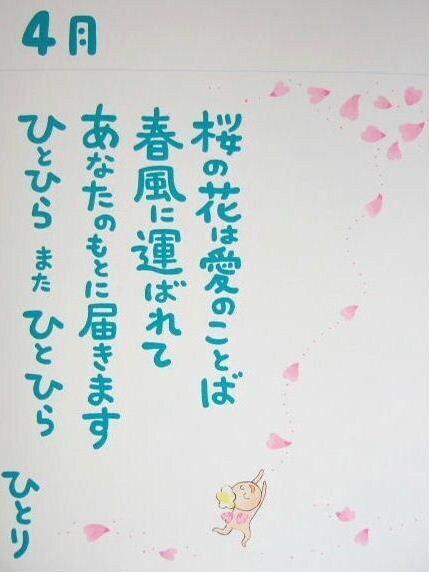 4月
桜の花は愛のことば
春風に運ばれて
あなたのもとに届きます
ひとひら また ひとひら
ひとり